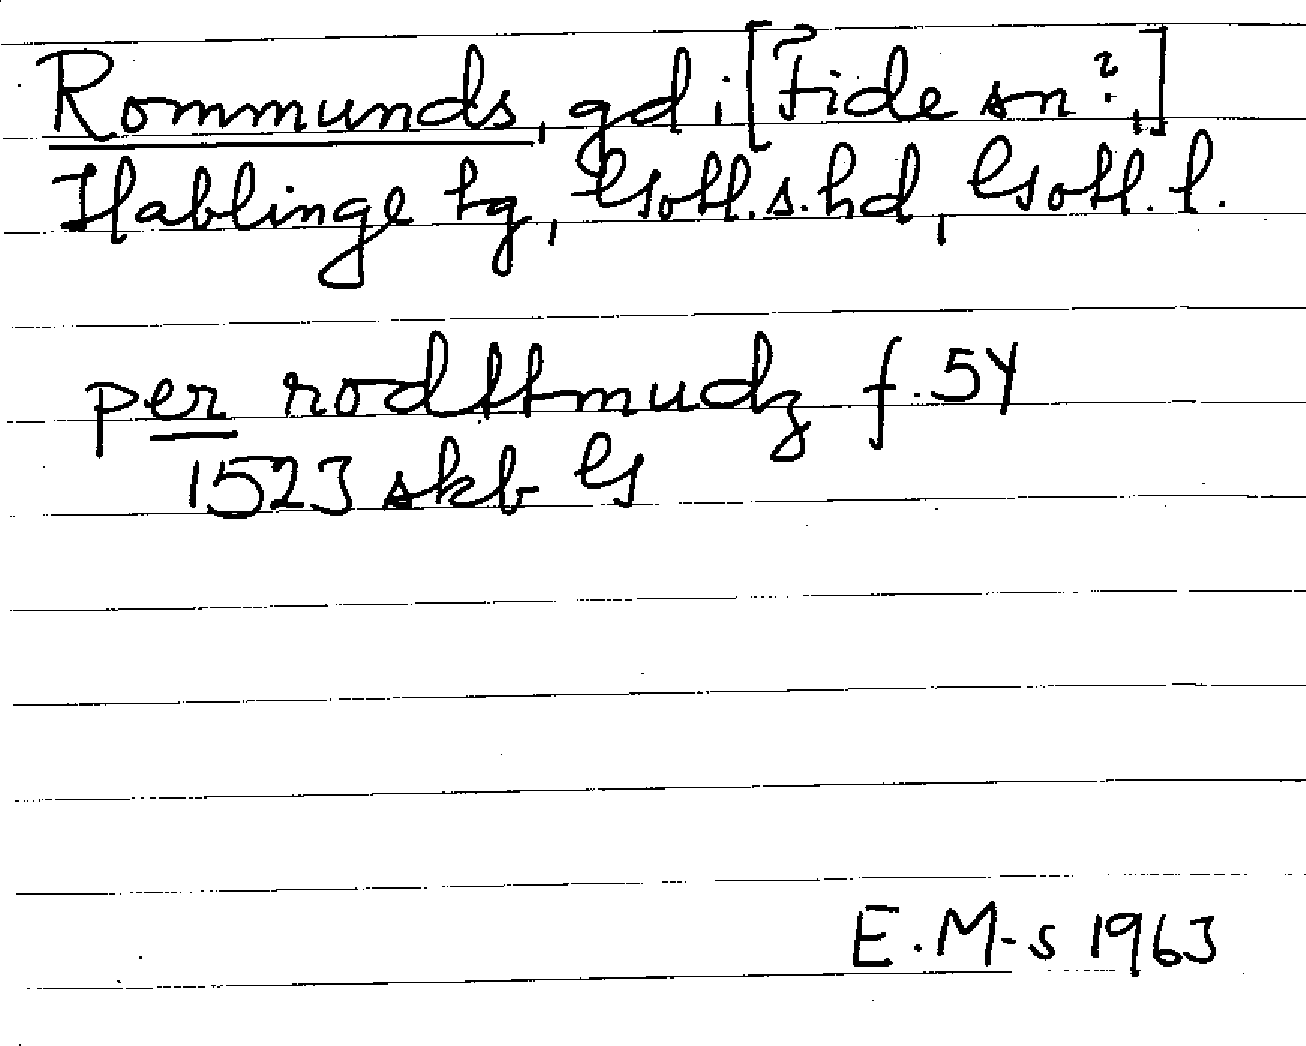 Rommunds, gd i [Fide sn?,]
Hablinge tg, Gotl. s. hd, Gotl. l.
per rodttmudz f. 54
1523 skb G
E. M-s 1963